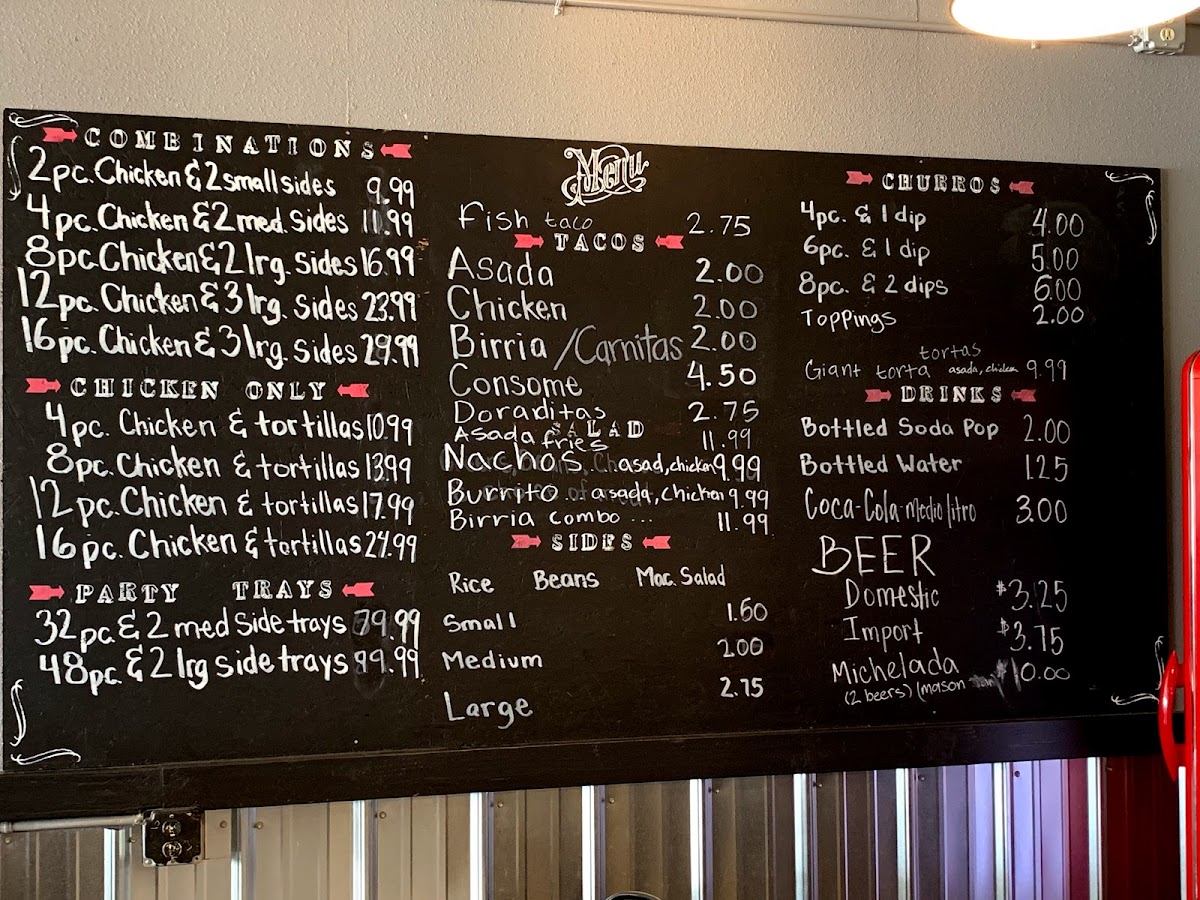 COMBINATIONS
2pc. Chicken & 2 small sides 9.99
4pc. Chicken & 2 med. Sides 11.99
8pc. Chicken & 2 lrg. Sides 16.99
12pc. Chicken & 3 lrg. sides 23.99
16pc. Chicken & 3 lrg. sides 29.99
CHICKEN ONLY
4pc. Chicken & tortillas 10.99
8pc. Chicken & tortillas 13.99
12pc. Chicken & tortillas 17.99
16pc. Chicken & tortillas 24.99
PARTY TRAYS
32pc. & 2 med side trays 79.99
48pc. & 2 lrg side trays 99.99
Menu
Fish taco 2.75
TACOS
Asada 2.00
Chicken 2.00
Birria /Carnitas 2.00
Consome 4.50
Doraditas 2.75
SALAD
Asada fries 11.99
Nachos asad, chicken 9.99
Burrito asada, chicken 9.99
Birria combo ... 11.99
SIDES
Rice Beans Mac. Salad
Small 1.50
Medium 2.00
Large 2.75
CHURROS
4pc. & 1 dip 4.00
6pc. & 1 dip 5.00
8pc. & 2 dips 6.00
Toppings 2.00
tortas
Giant torta asada, chicken 9.99
DRINKS
Bottled Soda Pop 2.00
Bottled Water 1.25
Coca-Cola Medio litro 3.00
BEER
Domestic $3.25
Import $3.75
Michelada $10.00
(2 beers) (mason